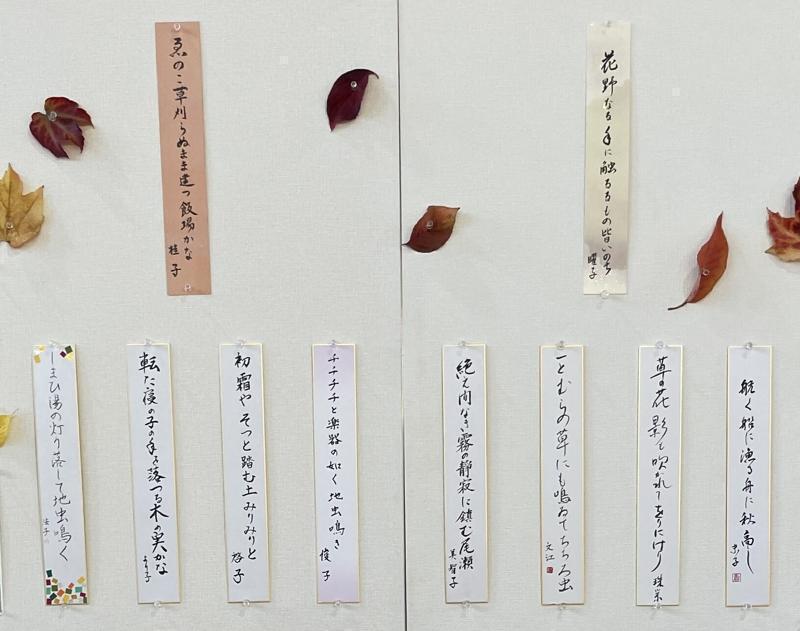 花野なる手に触るるもの皆いのち
曜子
ゑのこ草刈らぬまま建つ飯場かな
桂子
航く船に漁る舟に秋高し
草の花影も吹かれてをりにけり
珠栄
一とむらの草にも鳴ゐてちちろ虫
文江
絶え間なき霧の静寂に鎮む尾瀬
美智子
チチチチと楽器の如く地虫鳴き
俊子
初霜やそつと踏む土みりみりと
転た寝の子の手を落つる木の実かな
しまひ湯の灯り落して地虫鳴く